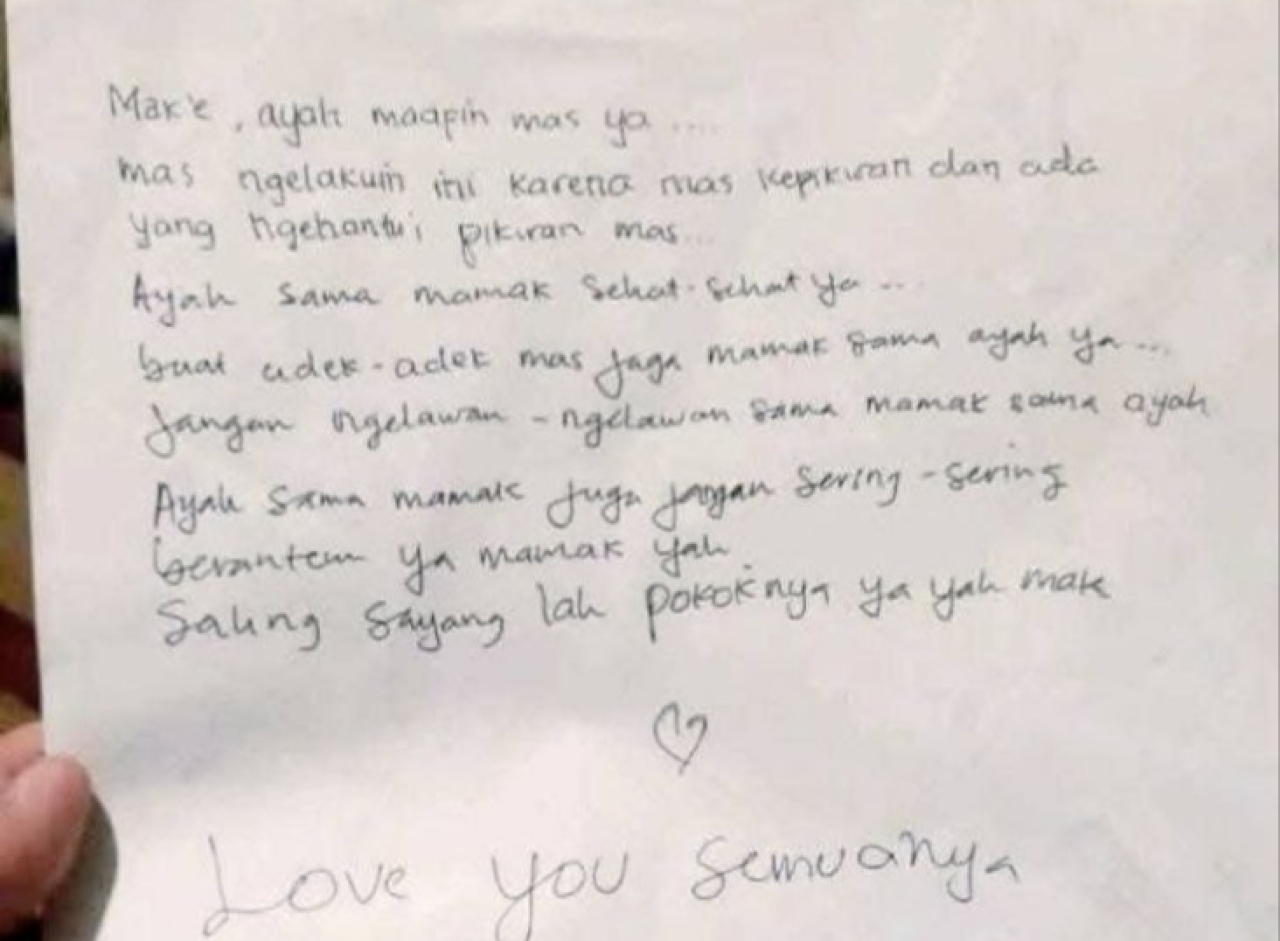 Mak'e, ayah maapin mas ya ....
mas ngelakuin ini karena mas kepikiran dan ada
yang ngehantui pikiran mas...
Ayah sama mamak sehat-sehat ya ...
buat adek-adek mas jaga mamak sama ayah ya...
Jangan ngelawan-ngelawan sama mamak sama ayah
Ayah sama mamak juga jangan sering-sering
berantem ya mamak yah.
Saling sayang lah pokoknya ya yah mak
Love you semuanya